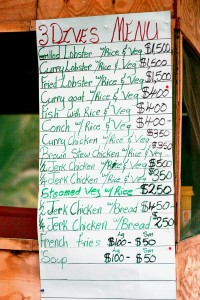 3 Dives Menu
Grilled Lobster w/Rice & Veg $1,500
Curry Lobster w/Rice & Veg $1,500
Fried Lobster w/Rice & Veg $1,500
Curry goat w/Rice & Veg $400
Fish with Rice & Veg $400
Conch w/ Rice & Veg $400
Curry Chicken w/Rice & Veg $350
Brown Stew Chicken w/Rice & Veg $350
Jerk Chicken w/Rice & Veg
Jerk Chicken w/Rice & Veg
Steamed Veg w/ Rice $250
Jerk Chicken w/Bread $450
Jerk Chicken w/Bread $250
French fries $100 - $50
Soup $100 - $50